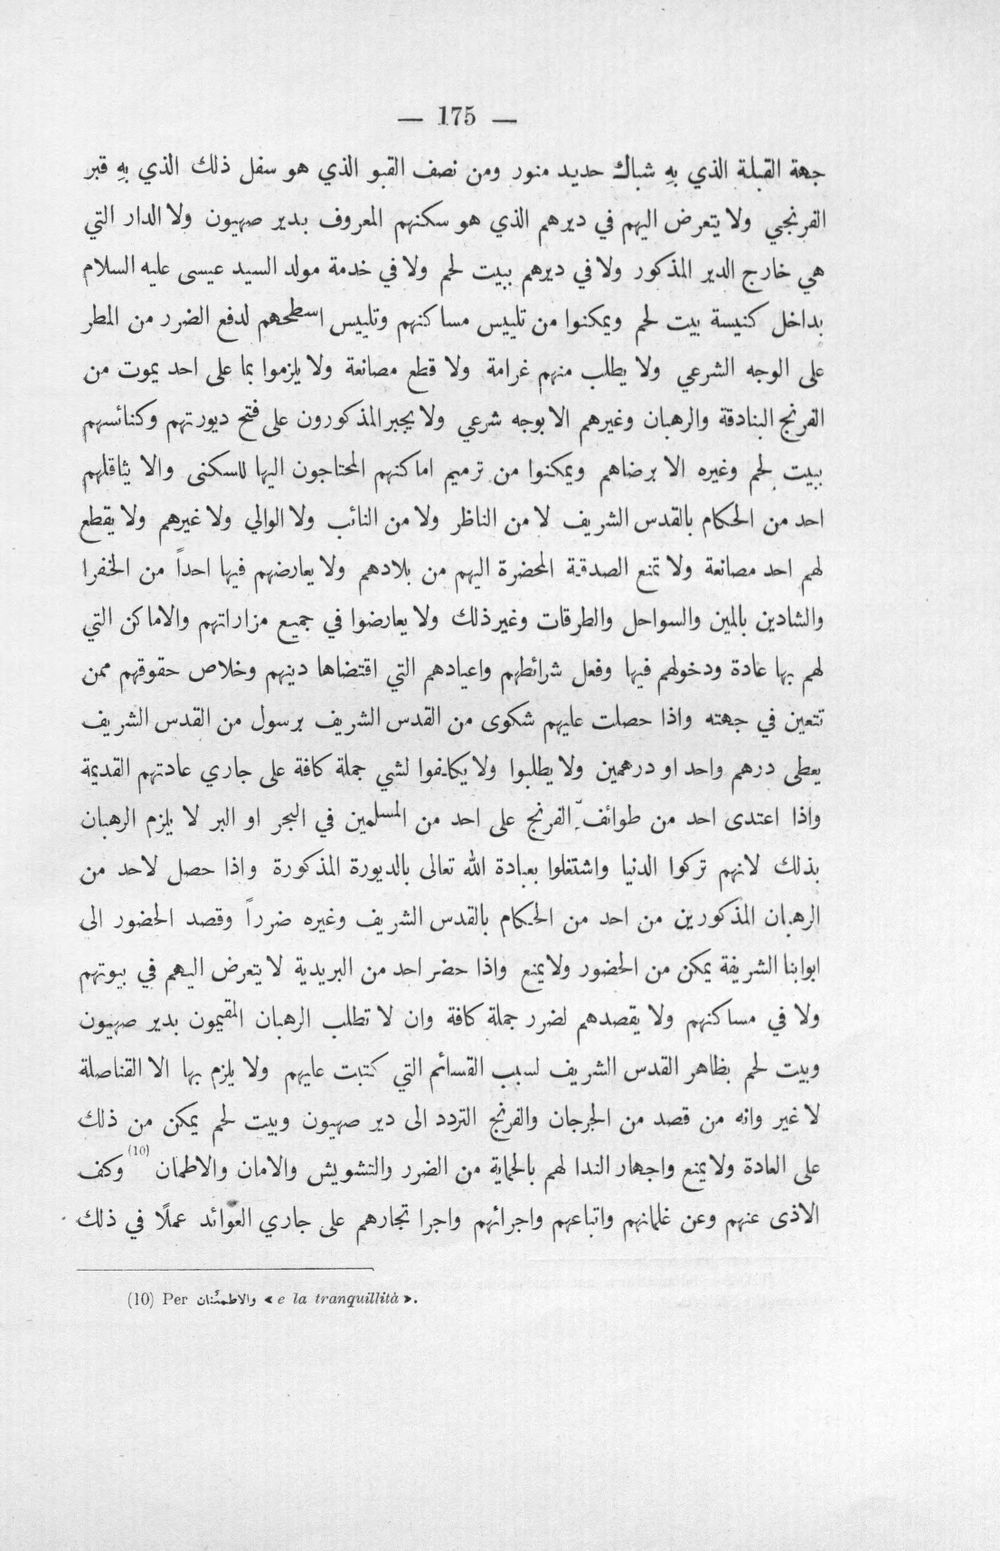 — 175 —
جهة القبلة الذي بهِ شباك حديد منور ومن نصف القبو الذي هو سفل ذلك الذي بهِ قبر
الفرنجي ولا يتعرض اليهم في ديرهم الذي هو سكنهم المعروف بدير صهيون ولا الدار التي
هي خارج الدير المذكور ولا في ديرهم ببيت لحم ولا في خدمة مولد السيد عيسى عليه السلام
بداخل كنيسة بيت لحم ويمكنوا من تلييس مساكنهم وتلييس اسطحهم لدفع الضرر من المطر
على الوجه الشرعي ولا يطلب منهم غرامة ولا قطع مصانعة ولا يلزموا بما على احد يموت من
الفرنج البنادقة والرهبان وغيرهم الا بوجه شرعي ولا يجبر المذكورون على فتح ديورتهم وكنائسهم
ببيت لحم وغيره الا برضاهم ويمكنوا من ترميم اماكنهم المحتاجون اليها للسكنى والا يثاقلهم
احد من الحكام بالقدس الشريف لا من الناظر ولا من النائب ولا الوالي ولا غيرهم ولا يقطع
لهم احد مصانعة ولا تمنع الصدقة المحضرة اليهم من بلادهم ولا يعارضهم فيها احداً من الخفرا
والشادين بالمين والسواحل والطرقات وغير ذلك ولا يعارضوا في جميع مزاراتهم والاماكن التي
لهم بها عادة ودخولهم فيها وفعل شرائطهم واعيادهم التي اقتضاها دينهم وخلاص حقوقهم ممن
تتعين في جهته واذا حصلت عليهم شكوى من القدس الشريف برسول من القدس الشريف
يعطى درهم واحد او درهمين ولا يطلبوا ولا يكلفوا لشي جملة كافة على جاري عادتهم القديمة
واذا اعتدى احد من طوائف الفرنج على احد من المسلمين في البحر او البر لا يلزم الرهبان
بذلك لانهم تركوا الدنيا واشتغلوا بعبادة الله تعالى بالديورة المذكورة واذا حصل لاحد من
الرهبان المذكورين من احد من الحكام بالقدس الشريف وغيره ضرراً وقصد الحضور الى
ابوابنا الشريفة يمكن من الحضور ولا يمنع واذا حضر احد من البريدية لا يتعرض اليهم في بيوتهم
ولا في مساكنهم ولا يقصدهم لضرر جملة كافة وان لا تطلب الرهبان المقيمون بدير صهيون
وبيت لحم بظاهر القدس الشريف لسبب القسائم التي كتبت عليهم ولا يلزم بها الا القناصلة
لا غير وانه من قصد من الجرجان والفرنج التردد الى دير صهيون وبيت لحم يمكن من ذلك
على العادة ولا يمنع واجهار الندا لهم بالحماية من الضرر والتشويش والامان والاطمان (10) وكف
الاذى عنهم وعن غلمانهم واتباعهم واجرائهم واجرا تجارهم على جاري العوائد عملًا في ذلك
(10) Per والاطمئنان « e la tranquillità ».